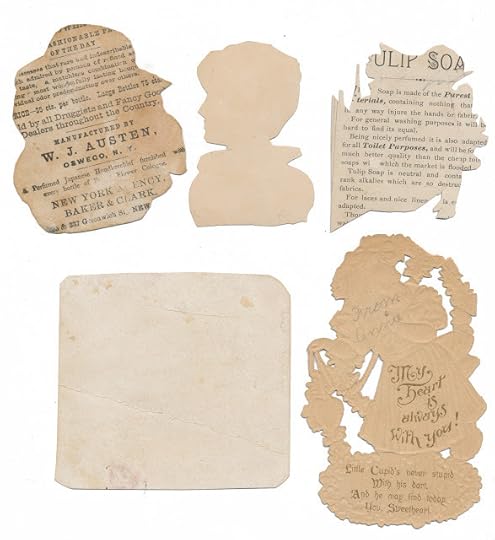 FASHIONABLE
OF THE DAY
possesses that rare and indescribable
admired by persons of refined
taste, a matchless combination
most wonderfully lasting
odor predominating over others.
PRICE—25 cts. per bottle. Large Bottles 75 cts.
Sold by all Druggists and Fancy Goods
Dealers throughout the Country.
MANUFACTURED BY
W. J. AUSTEN,
OSWEGO, N. Y.
A Perfumed Japanese Handkerchief furnished with
every bottle of Flower Cologne.
NEW YORK AGENCY,
BAKER & CLARK,
& 387 Greenwich St., NEW
TULIP SOA
Soap is made of the Purest
Materials, containing nothing that
any way injure the hands or fabrics
For general washing purposes it will
hard to find its equal.
Being nicely perfumed it is also adapted
for all Toilet Purposes, and will be fo
much better quality than the cheap toi
soaps wi which the market is flooded
Tulip Soap is neutral and conta
rank alkalies which are so destruc
fabrics.
For laces and nice linen
adapted.
From
Annie
My
heart
is
always
with you!
Little Cupid's never stupid
With his dart,
And he may find today
You, Sweetheart.